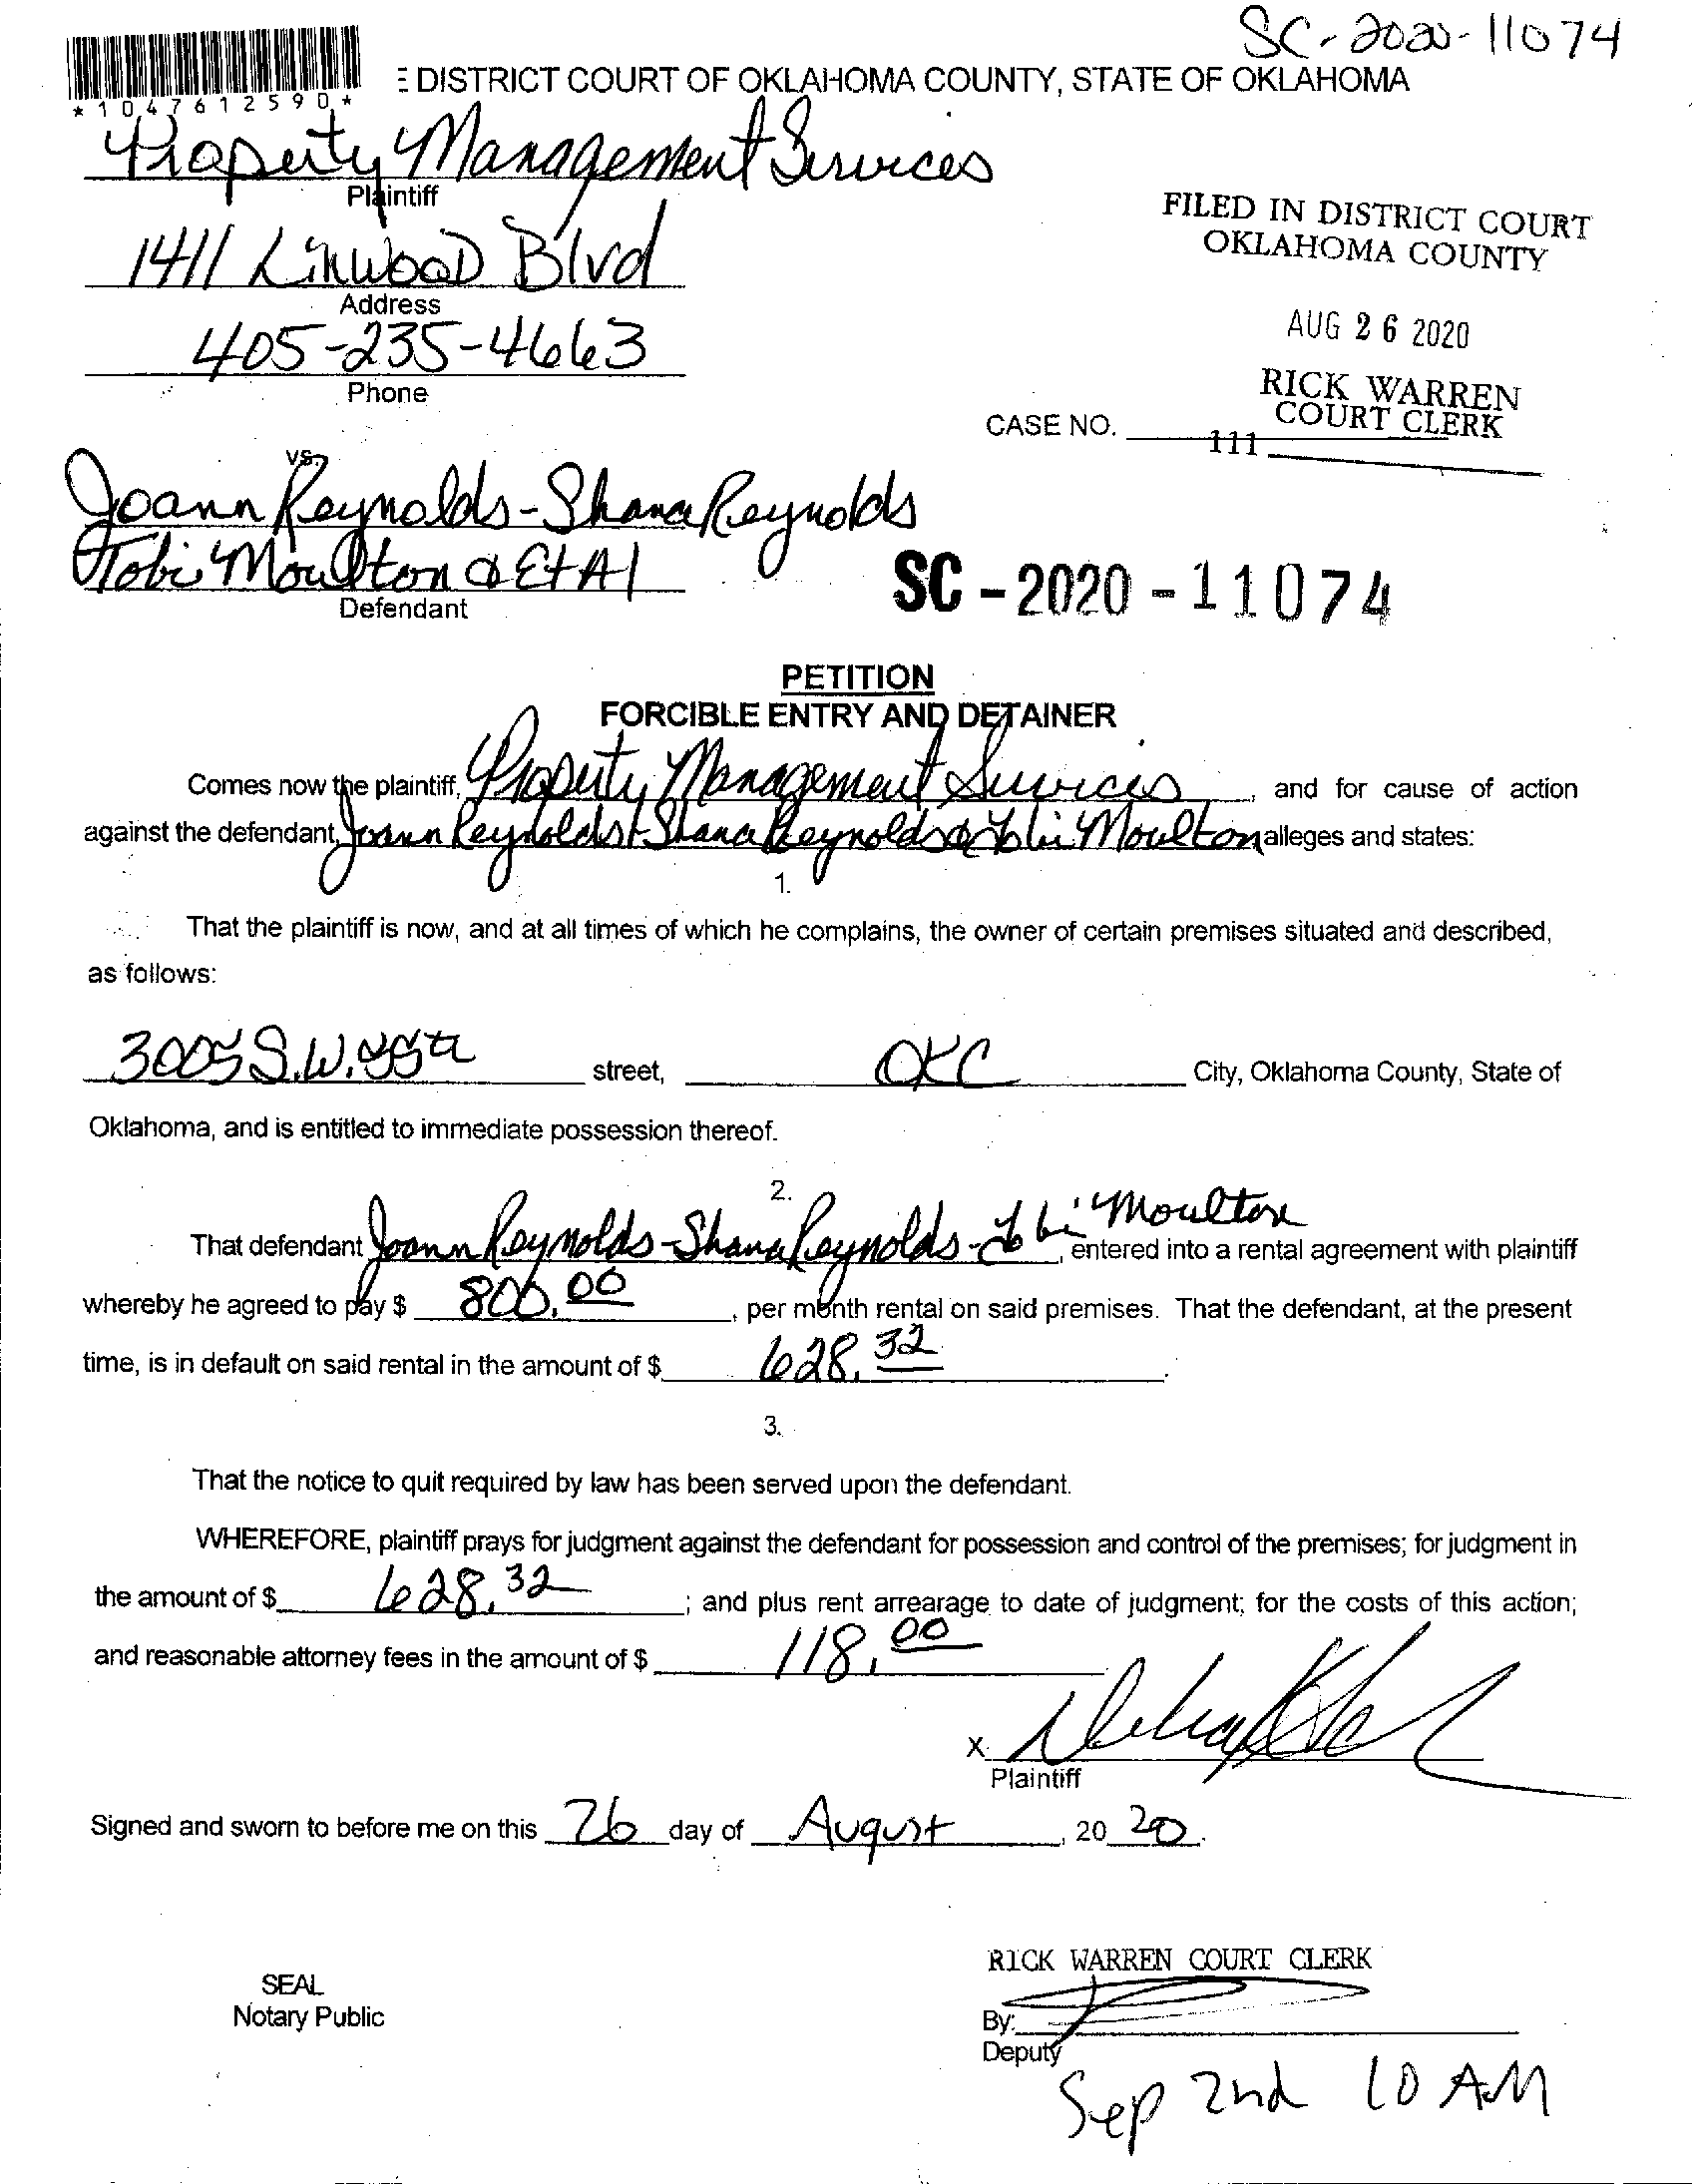 SC-2020-11074
* 1 0 4 7 6 1 2 5 9 0 *
E DISTRICT COURT OF OKLAHOMA COUNTY, STATE OF OKLAHOMA
Property Management Services
Plaintiff
1411 Linwood Blvd
Address
405-235-4663
Phone
FILED IN DISTRICT COURT
OKLAHOMA COUNTY
AUG 26 2020
RICK WARREN
COURT CLERK
CASE NO. 111
vs.
Joann Reynolds-Shana Reynolds
Tobi Moulton & Et Al
Defendant
SC-2020-11074
PETITION
FORCIBLE ENTRY AND DETAINER
Comes now the plaintiff, Property Management Services, and for cause of action
against the defendant, Joann Reynolds & Shana Reynolds & Tobi Moulton alleges and states:
1.
That the plaintiff is now, and at all times of which he complains, the owner of certain premises situated and described,
as follows:
3005 S.W. street, OKC City, Oklahoma County, State of
Oklahoma, and is entitled to immediate possession thereof.
2.
That defendant Joann Reynolds-Shana Reynolds-Tobi Moulton, entered into a rental agreement with plaintiff
whereby he agreed to pay $ 800.00, per month rental on said premises. That the defendant, at the present
time, is in default on said rental in the amount of $ 628.32.
3.
That the notice to quit required by law has been served upon the defendant.
WHEREFORE, plaintiff prays for judgment against the defendant for possession and control of the premises; for judgment in
the amount of $ 628.32; and plus rent arrearage to date of judgment; for the costs of this action;
and reasonable attorney fees in the amount of $ 118.00
X
Plaintiff
Signed and sworn to before me on this 26 day of August, 20 20.
RICK WARREN COURT CLERK
SEAL
Notary Public
By:
Deputy
Sep 2nd 10 AM